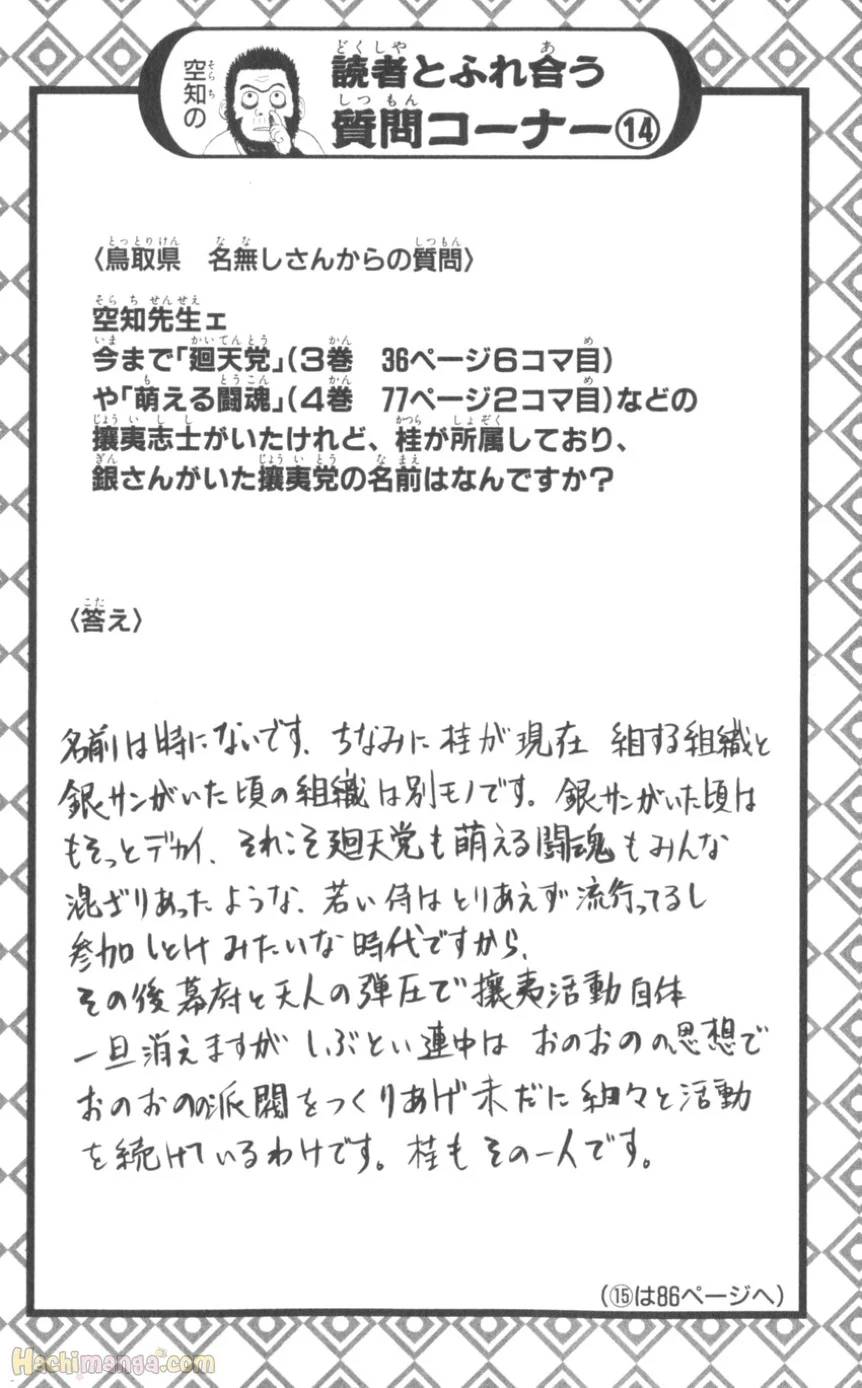 空知の
読者とふれ合う
質問コーナー⑭
〈鳥取県　名無しさんからの質問〉
空知先生ェ
今まで「廻天党」(3巻　36ページ6コマ目)
や「萌える闘魂」(4巻　77ページ2コマ目)などの
攘夷志士がいたけれど、桂が所属しており、
銀さんがいた攘夷党の名前はなんですか？
〈答え〉
名前は特にないです、ちなみに桂が現在 組する組織と
銀サンがいた頃の組織は別モノです。銀サンがいた頃は
もそっとデカイ、それこそ廻天党も萌える闘魂もみんな
混ざりあったような、若い侍はとりあえず流行ってるし
参加しとけみたいな時代ですから、
その後幕府と天人の弾圧で攘夷活動自体
一旦消えますが しぶとい連中は おのおのの思想で
おのおのの派閥をつくりあげ未だに細々と活動
を続けているわけです。桂もその一人です。
(⑮は86ページへ)
Hachimanga.com